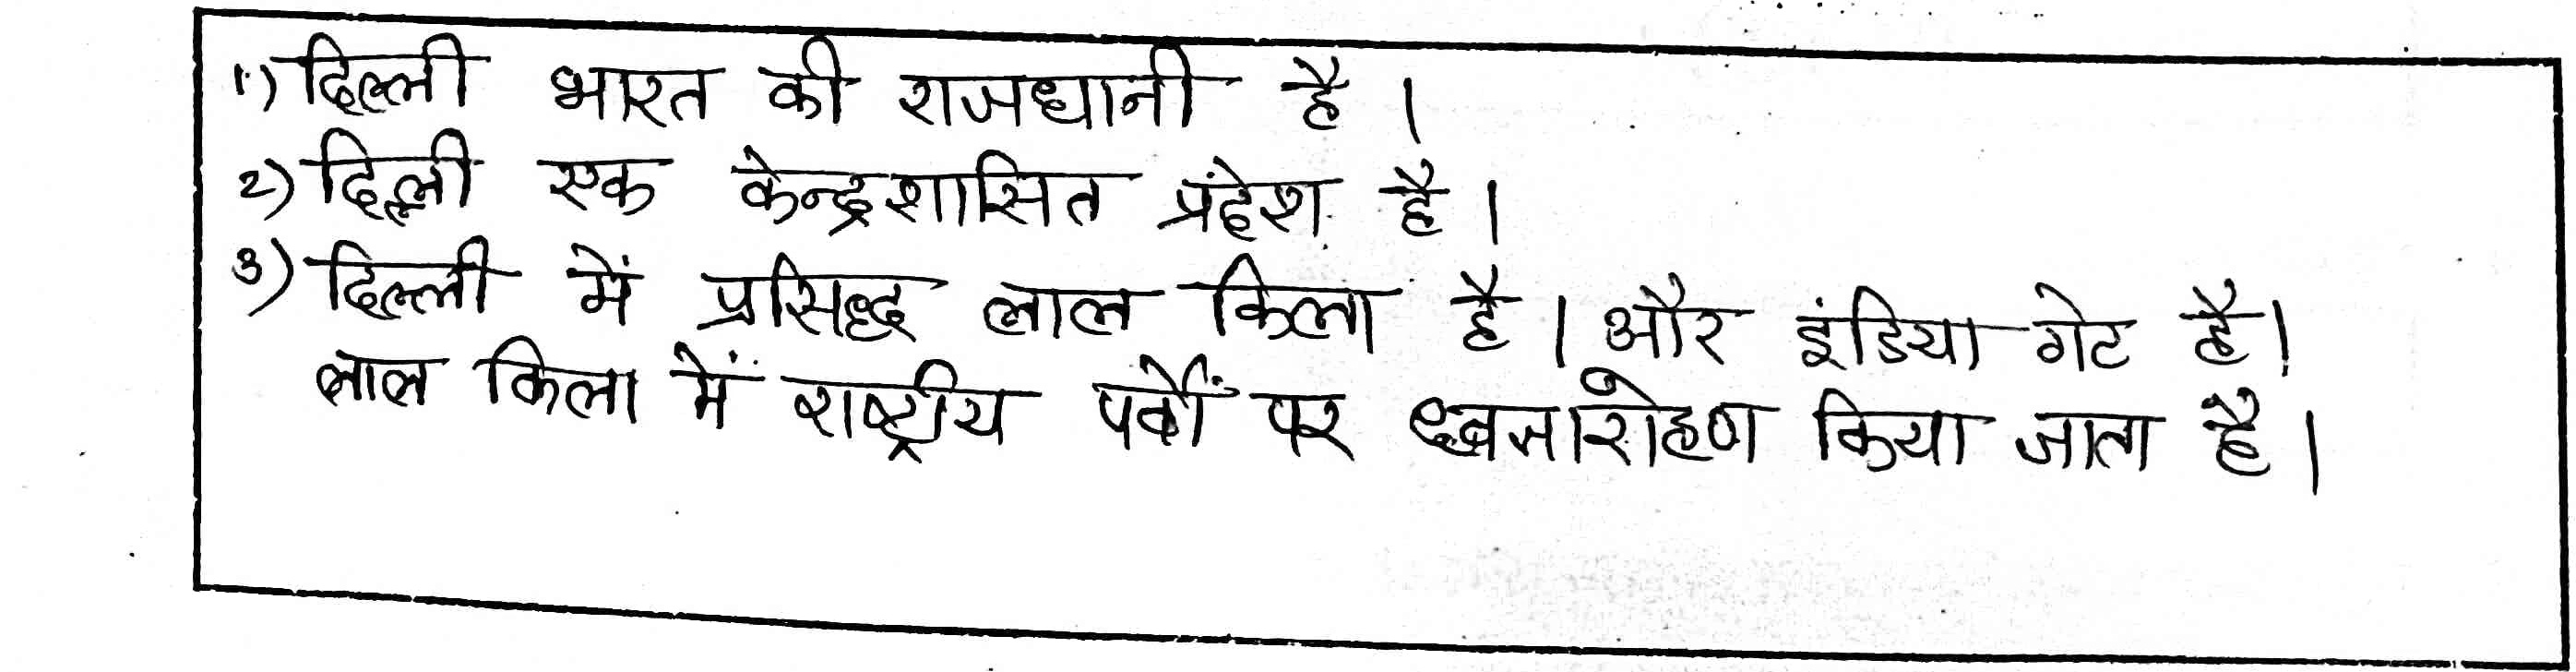 1) दिल्ली भारत की राजधानी है ।
2) दिल्ली एक केन्द्रशासित प्रंदेश है ।
3) दिल्ली में प्रसिद्ध लाल किला है । और इंडिया गेट है ।
लाल किला में राष्ट्रीय पर्वों पर ध्वजारोहण किया जाता है ।